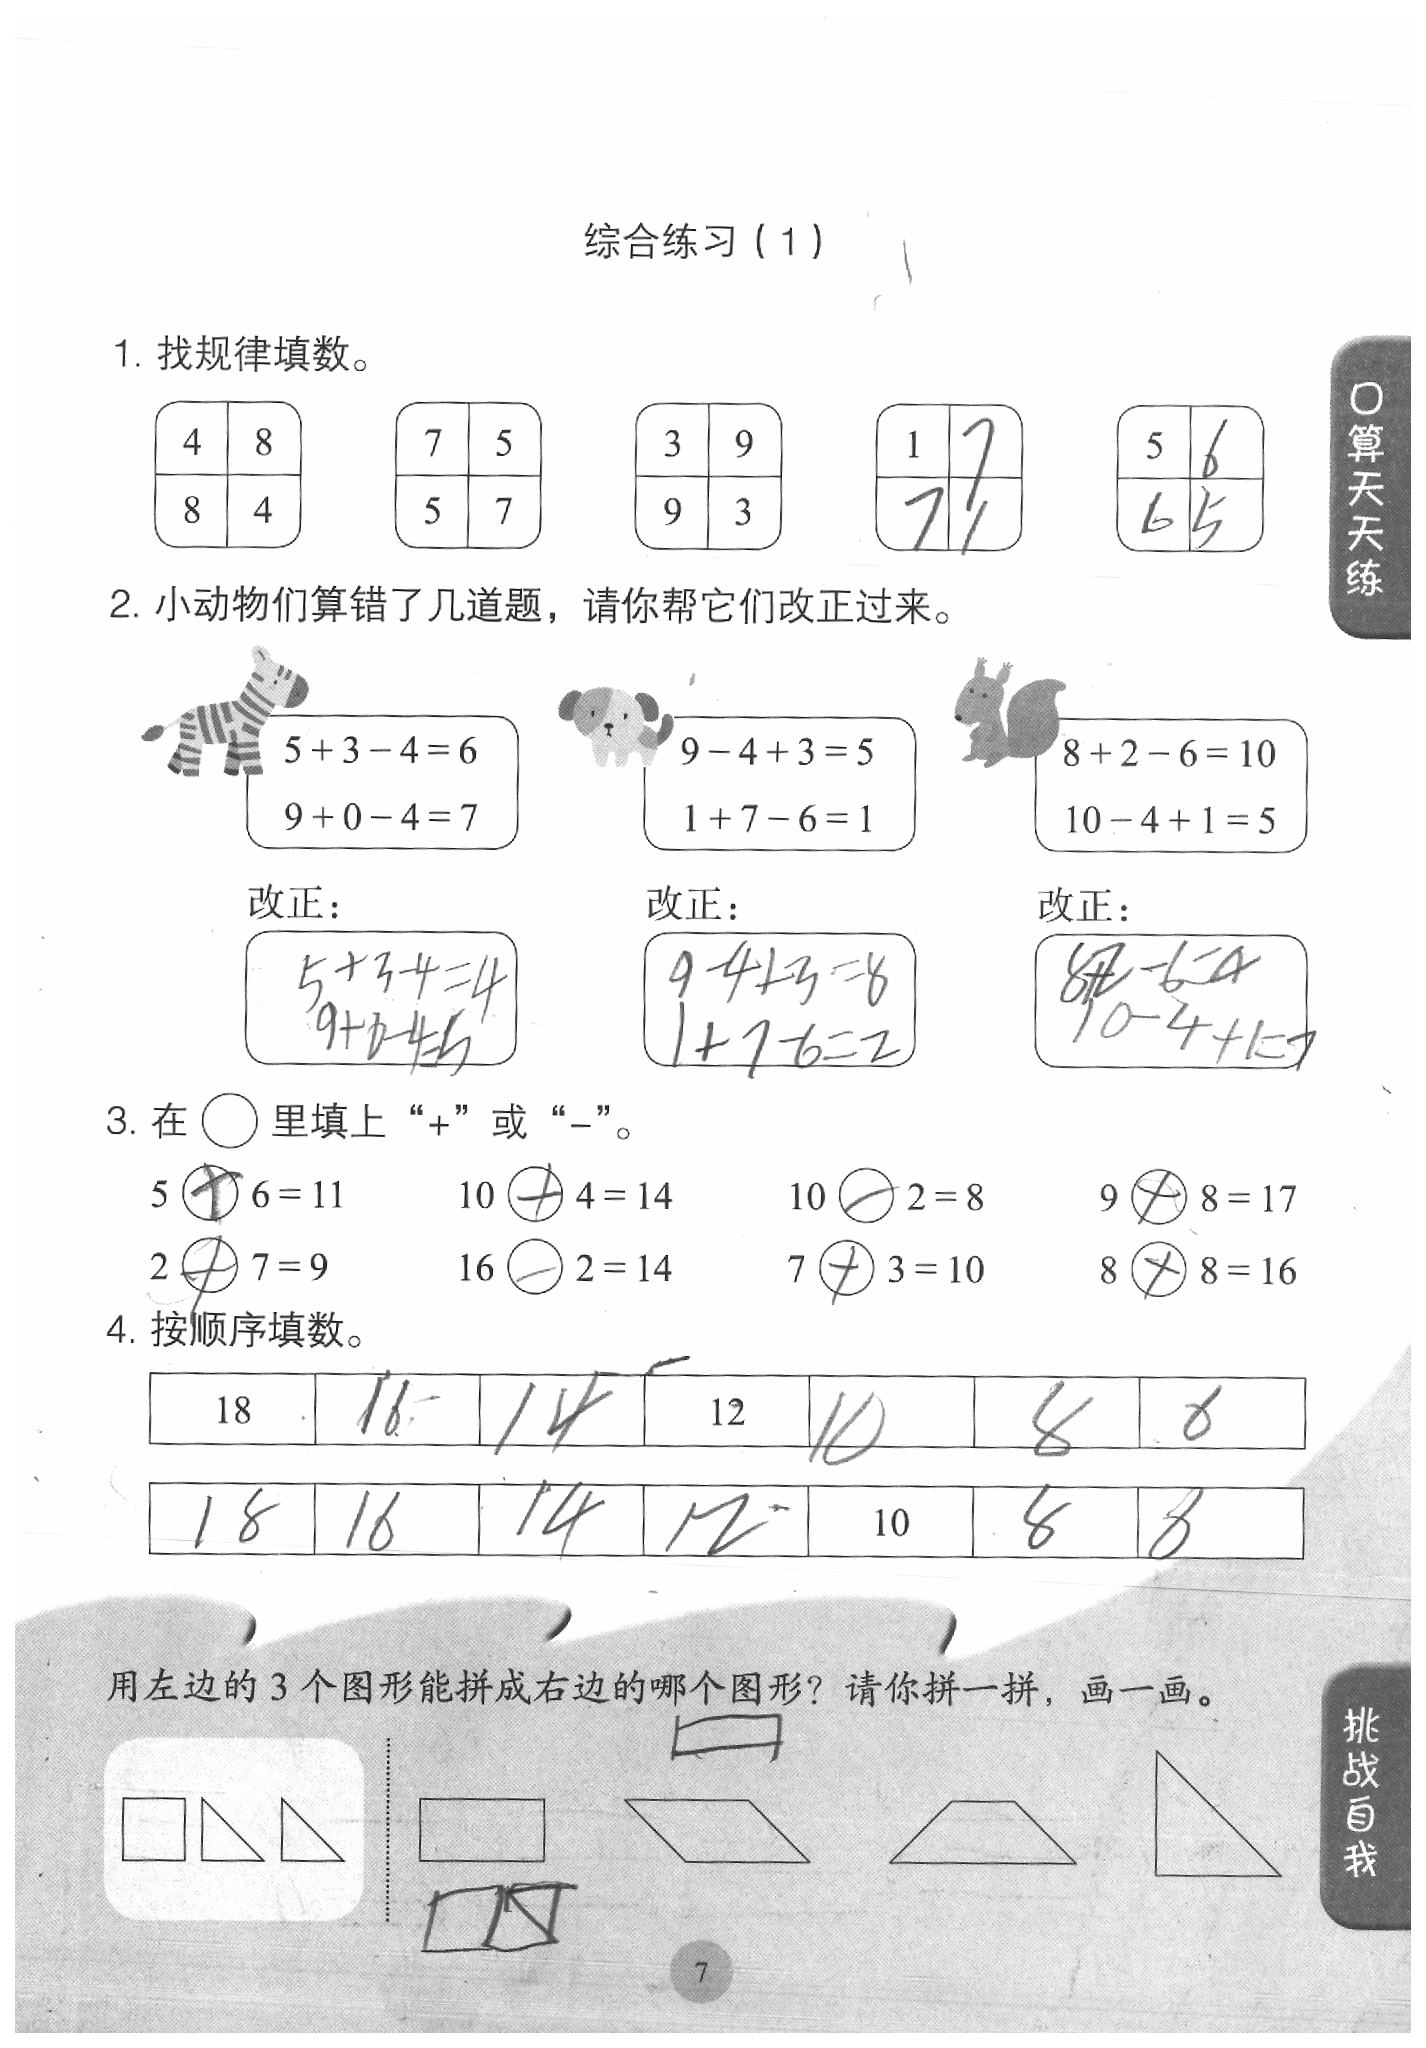 综合练习（1）
1. 找规律填数。
4 8 7 5 3 9 1 7 5 6
8 4 5 7 9 3 7 1 6 5
2. 小动物们算错了几道题，请你帮它们改正过来。
5+3-4=6 9-4+3=5 8+2-6=10
9+0-4=7 1+7-6=1 10-4+1=5
改正： 改正： 改正：
5+3-4=4 9-4+3=8 8+2-6=4
9+0-4=5 1+7-6=2 10-4+1=7
3. 在○里填上“+”或“-”。
5+6=11 10+4=14 10-2=8 9+8=17
2+7=9 16-2=14 7+3=10 8+8=16
4. 按顺序填数。
18 16 14 12 10 8 6
18 16 14 12 10 8
用左边的3个图形能拼成右边的哪个图形？请你拼一拼，画一画。
7
口算天天练
挑战自我